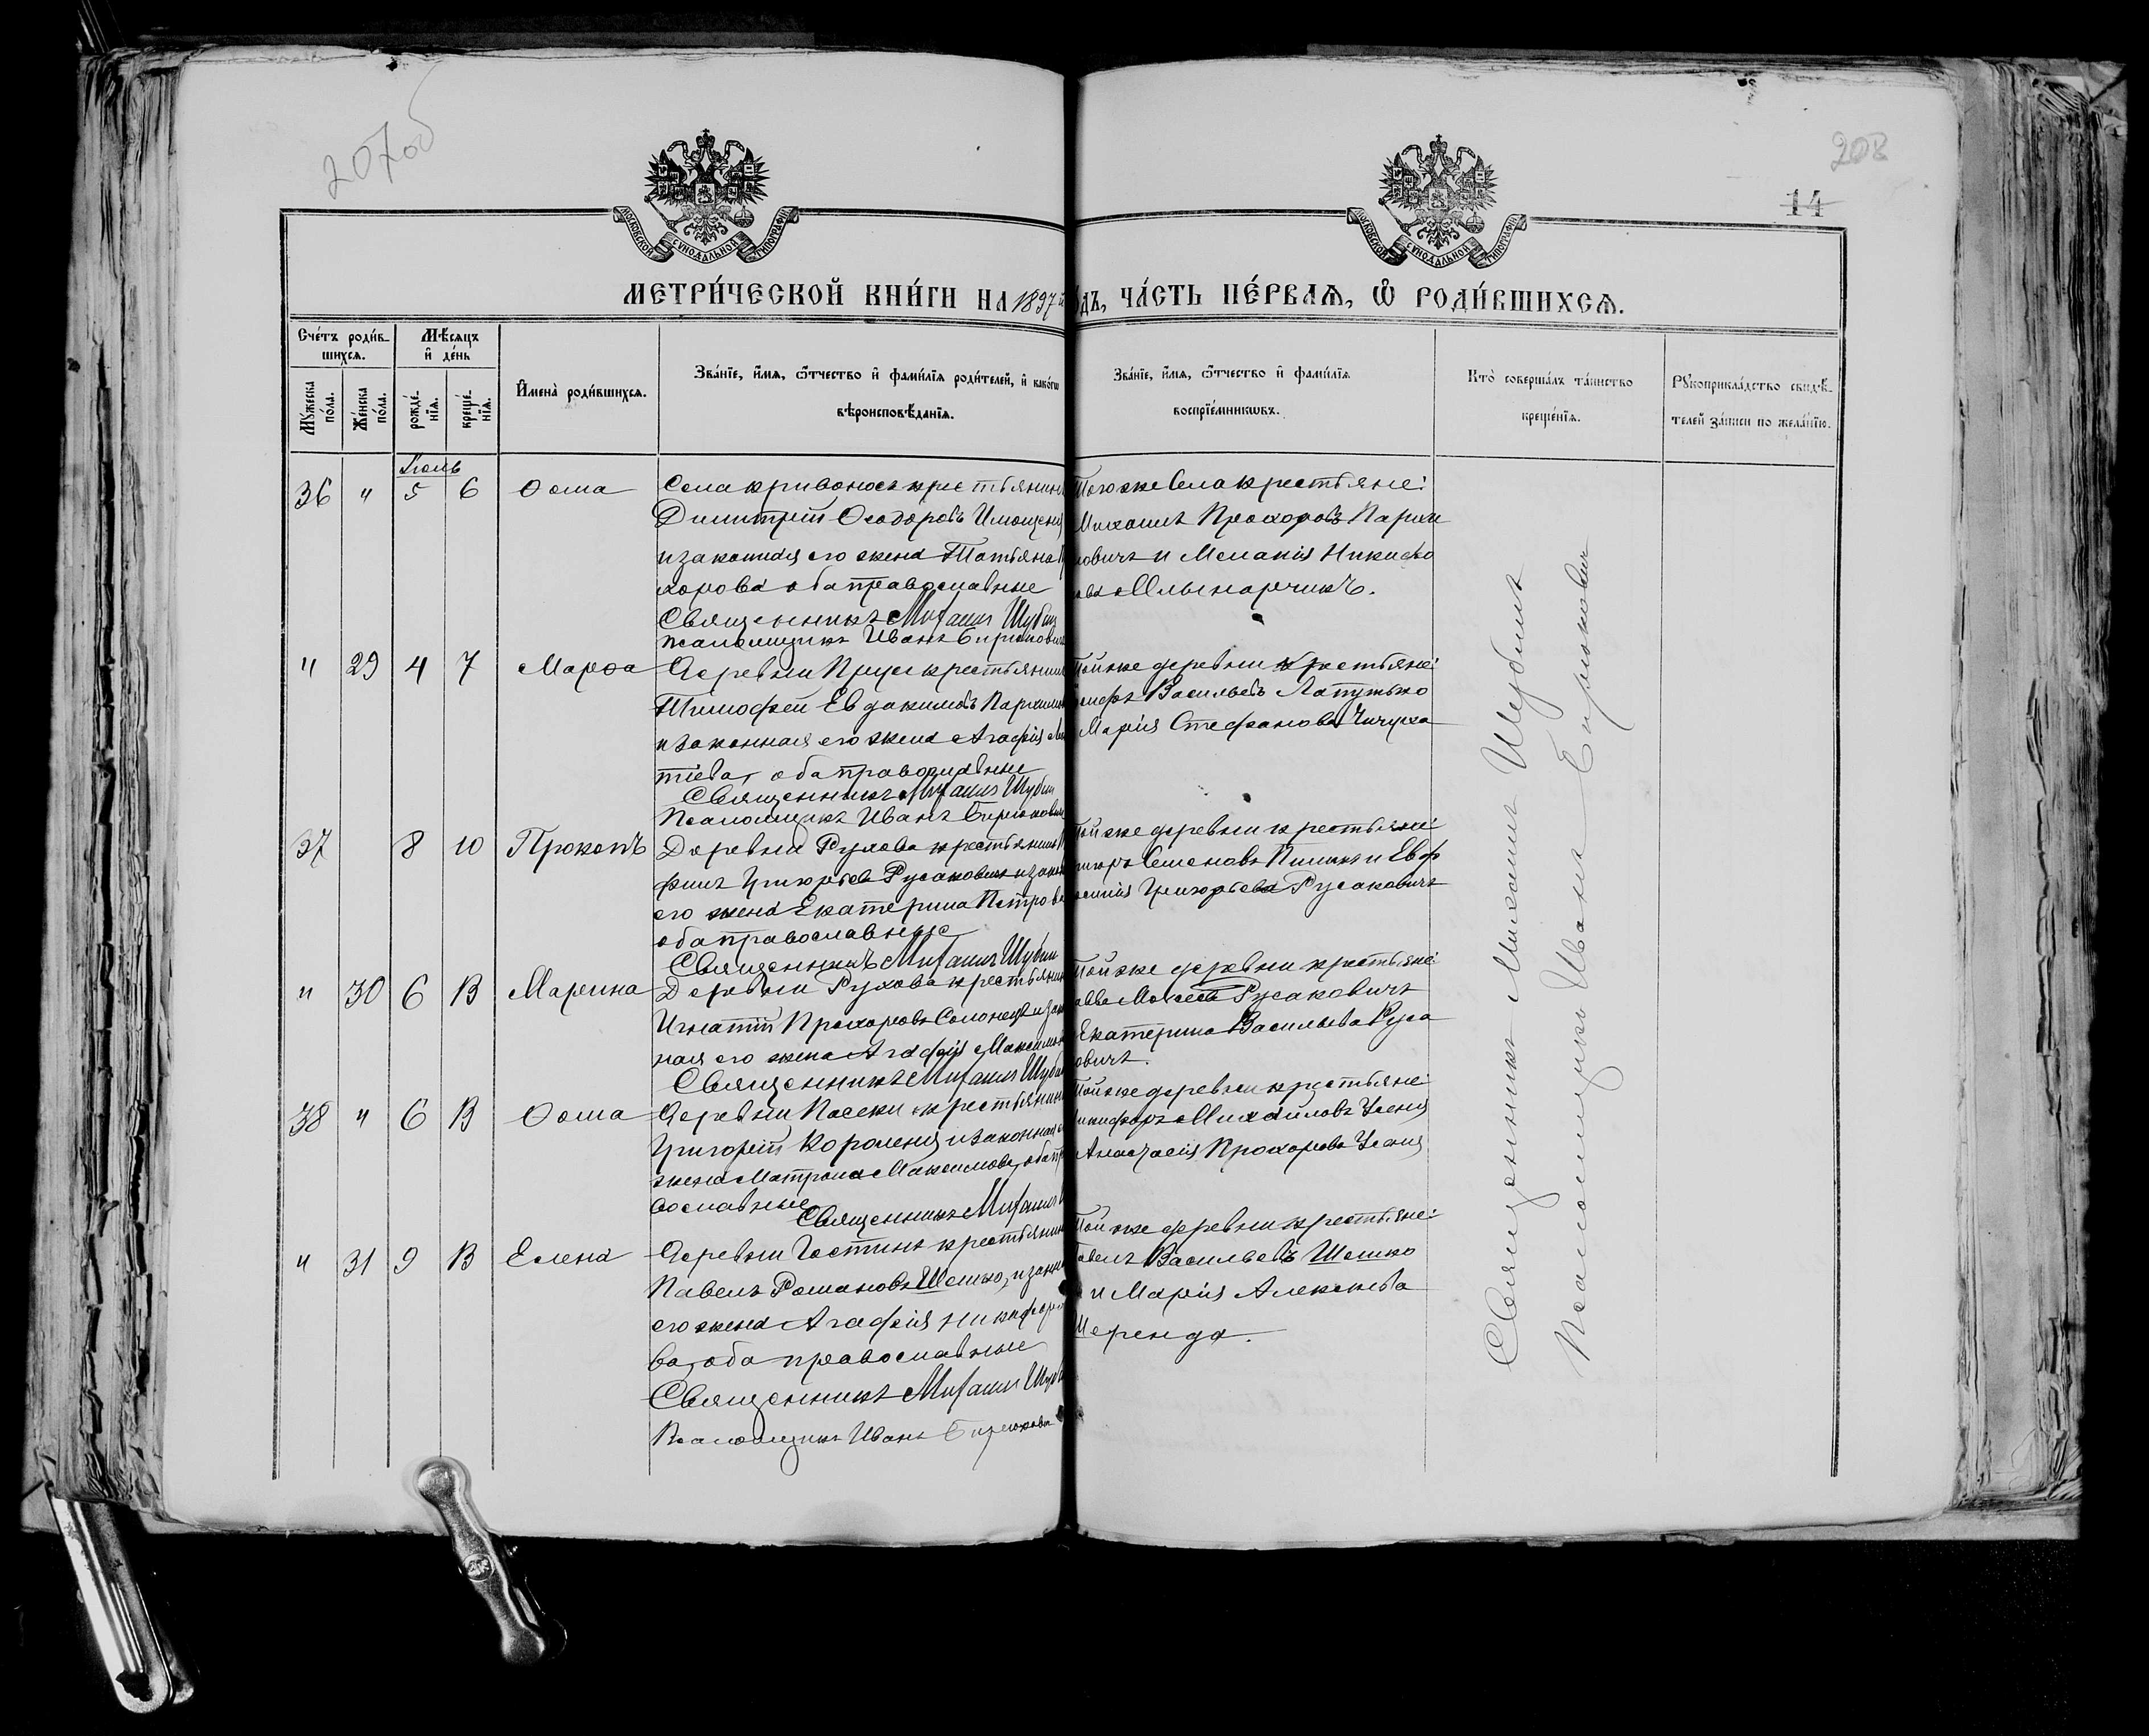 207об
208
14
МОСКОВСКОЙ СѴНОДАЛЬНОЙ ТИПОГРАФІИ
МОСКОВСКОЙ СѴНОДАЛЬНОЙ ТИПОГРАФІИ
МЕТРИ́ЧЕСКОЙ КНИ́ГИ НА 1897 й
ДЪ, ЧА́СТЬ ПЕ́РВАѦ, Ѽ РОДИ́ВШИХСѦ.
Сче́тъ роди́в-
шихсѧ.
Мꙋжеска по́ла.
Же́нска по́ла.
Мѣ́сѧцъ и҆ де́нь
рожде́нїѧ.
креще́нїѧ.
И҆мена̀ роди́вшихсѧ.
Зва́нїе, и҆́мѧ, ѻ҆́тчество и҆ фами́лїѧ роди́телей, и҆ како́гѡ
вѣроисповѣ́данїѧ.
Зва́нїе, и҆́мѧ, ѻ҆́тчество и҆ фами́лїѧ
воспрїе́мникѡвъ.
Кто̀ соверша́лъ та́инство
креще́нїѧ.
Рꙋкоприкла́дство свидѣ́-
телей за́писи по жела́нїю.
Іюль
36 " 5 6 Ѳома
Села Кривоноса крестьянинъ
Димитрій Ѳеодоровъ
и законная его жена Татьяна
хорова оба православные
Священникъ Михаилъ Шубин
Псаломщикъ Иванъ Бирюкович
Того же Села крестьяне:
Михаилъ Прохоровъ Пархи
ович и Меланія Никифо
ова Мльнарчикъ.
" 29 4 7 Марѳа
Деревни Пруси крестьянин
Тимофей Евдокимовъ Пархим
и законная его жена Агафія
тіева, оба православные
Священникъ Михаилъ Шубин
Псаломщикъ Иванъ Бирюкович
Той же деревни крестьяне:
Васильевъ Лапутько
Марія Стефанова Чичуха
37 8 10 Прокопъ
Деревни Рухова крестьянинъ
филъ Григорьевъ Русаковичъ и закон
его жена Екатерина Петрова
оба православные
Священникъ Михаилъ Шубин
Той же деревни крестьяне:
Семеновъ и Евф
Григорьева Русаковичъ
" 30 6 13 Марина
Деревни Рухова крестьянин
Игнатій Прохоровъ и зак
ная его жена Агафія Максимо
Священникъ Михаилъ Шубин
Той же деревни крестьяне:
Русаковичъ
Екатерина Васильева Руса
овичъ.
38 " 6 13 Ѳома
Деревни Пасеки крестьянин
Григорій Короленя и законная
жена Матрона Максимова, оба пр
вославные
Священникъ Михаилъ
Той же деревни крестьяне:
икифоръ Михайловъ Усеня
Анастасія Прохорова Усеня
" 31 9 13 Елена
Деревни Гостинъ крестьянин
Павелъ Романовъ Шешко, и закон
его жена Агафія Никифоро
ва, оба православные
Священникъ Михаилъ Шуби
Псаломщикъ Иванъ Бирюкови
Той же деревни крестьяне:
авелъ Васильевъ Шешко
и Марія Алексѣева
Шеренда.
Священникъ Михаилъ Шубинъ
Псаломщикъ Иванъ Бирюкович